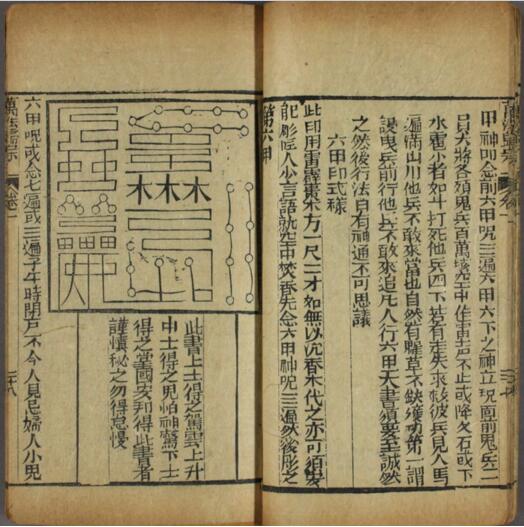 萬法歸宗 卷二
甲神呪念前六甲呪三遍六甲六下之神立現面前鬼兵二
員大將各領鬼兵百萬空中作雷声不止或降火石或下
水雹少者如斗打死他兵四下若有走失求救彼兵見人馬
遍滿山川他兵不敢來當也自然有糧草不缺獲功第一謂
兵前行他兵不敢來追凡人行六甲天書須要至誠然
之然後行法自有神通不可思議
六甲印式樣
此印用雷霹棗木方一尺二寸如無以沉香木代之亦可須要
能彫匠人少言語就空中焚香先念六甲神呪三遍然後彫之
第六甲
木木木
此書上士得之駕雲上升
中士得之鬼怕神驚下士
得之國安邦得此書者
謹慎秘之勿得怠慢
六甲呪或念七遍或三遍子午時閉戶不令人見忌婦人小兒
萬法歸宗 卷二 二十八